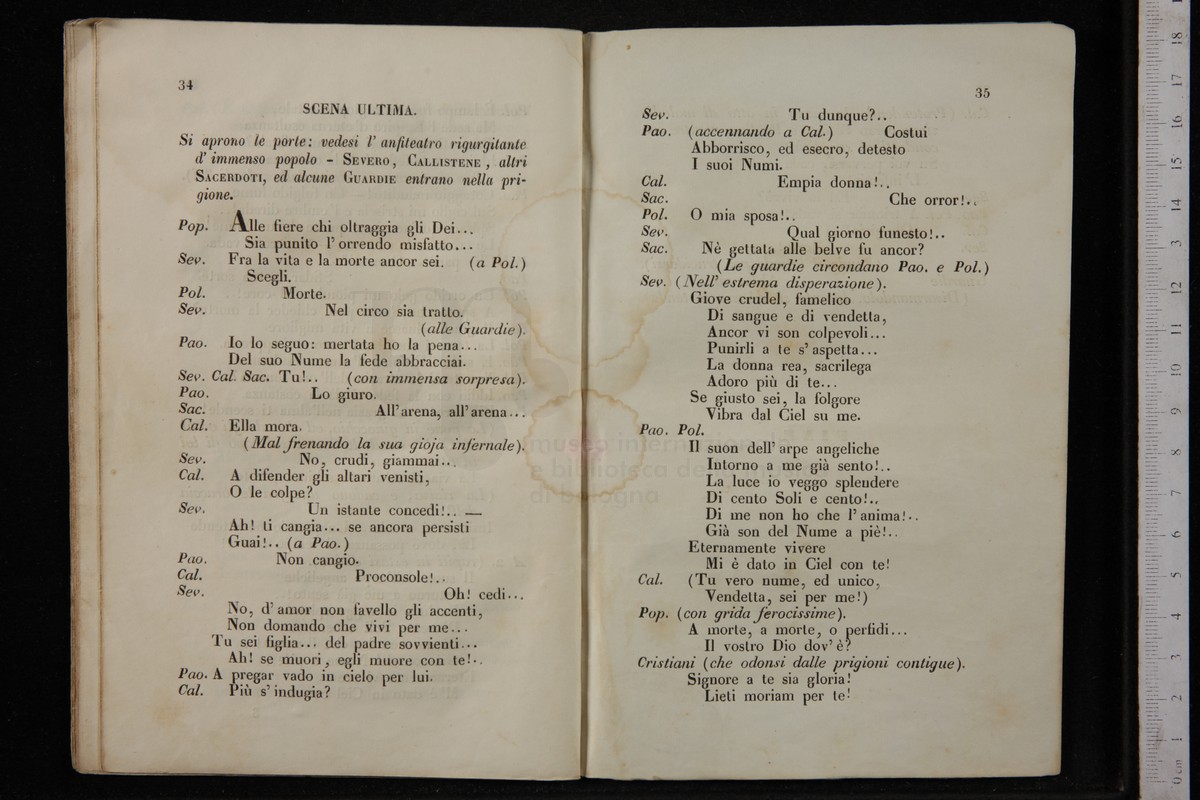 34
SCENA ULTIMA.
Si aprono le porte: vedesi l' anfiteatro rigurgitante
d' immenso popolo - SEVERO, CALLISTENE, altri
SACERDOTI, ed alcune GUARDIE entrano nella pri-
gione.
Pop. Alle fiere chi oltraggia gli Dei...
Sia punito l' orrendo misfatto...
Sev. Fra la vita e la morte ancor sei. (a Pol.)
Scegli.
Pol. Morte.
Sev. Nel circo sia tratto.
(alle Guardie).
Pao. Io lo seguo: mertata ho la pena...
Del suo Nume la fede abbracciai.
Sev. Cal. Sac. Tu!.. (con immensa sorpresa).
Pao. Lo giuro.
Sac. All' arena, all' arena...
Cal. Ella mora.
(Mal frenando la sua gioja infernale).
Sev. No, crudi, giammai...
Cal. A difender gli altari venisti,
O le colpe?
Sev. Un istante concedi!.. —
Ah! ti cangia... se ancora persisti
Guai!.. (a Pao.)
Pao. Non cangio.
Cal. Proconsole!..
Sev. Oh! cedi...
No, d' amor non favello gli accenti,
Non domando che vivi per me...
Tu sei figlia... del padre sovvienti...
Ah! se muori, egli muore con te!..
Pao. A pregar vado in cielo per lui.
Cal. Più s' indugia?
35
Sev. Tu dunque?..
Pao. (accennando a Cal.) Costui
Abborrisco, ed esecro, detesto
I suoi Numi.
Cal. Empia donna!..
Sac. Che orror!..
Pol. O mia sposa!..
Sev. Qual giorno funesto!..
Sac. Nè gettata alle belve fu ancor?
(Le guardie circondano Pao. e Pol.)
Sev. (Nell' estrema disperazione).
Giove crudel, famelico
Di sangue e di vendetta,
Ancor vi son colpevoli...
Punirli a te s' aspetta...
La donna rea, sacrilega
Adoro più di te...
Se giusto sei, la folgore
Vibra dal Ciel su me.
Pao. Pol.
Il suon dell' arpe angeliche
Intorno a me già sento!..
La luce io veggo splendere
Di cento Soli e cento!..
Di me non ho che l' anima!..
Già son del Nume a piè!..
Eternamente vivere
Mi è dato in Ciel con te!
Cal. (Tu vero nume, ed unico,
Vendetta, sei per me!)
Pop. (con grida ferocissime).
A morte, a morte, o perfidi...
Il vostro Dio dov' è?
Cristiani (che odonsi dalle prigioni contigue).
Signore a te sia gloria!
Lieti moriam per te!